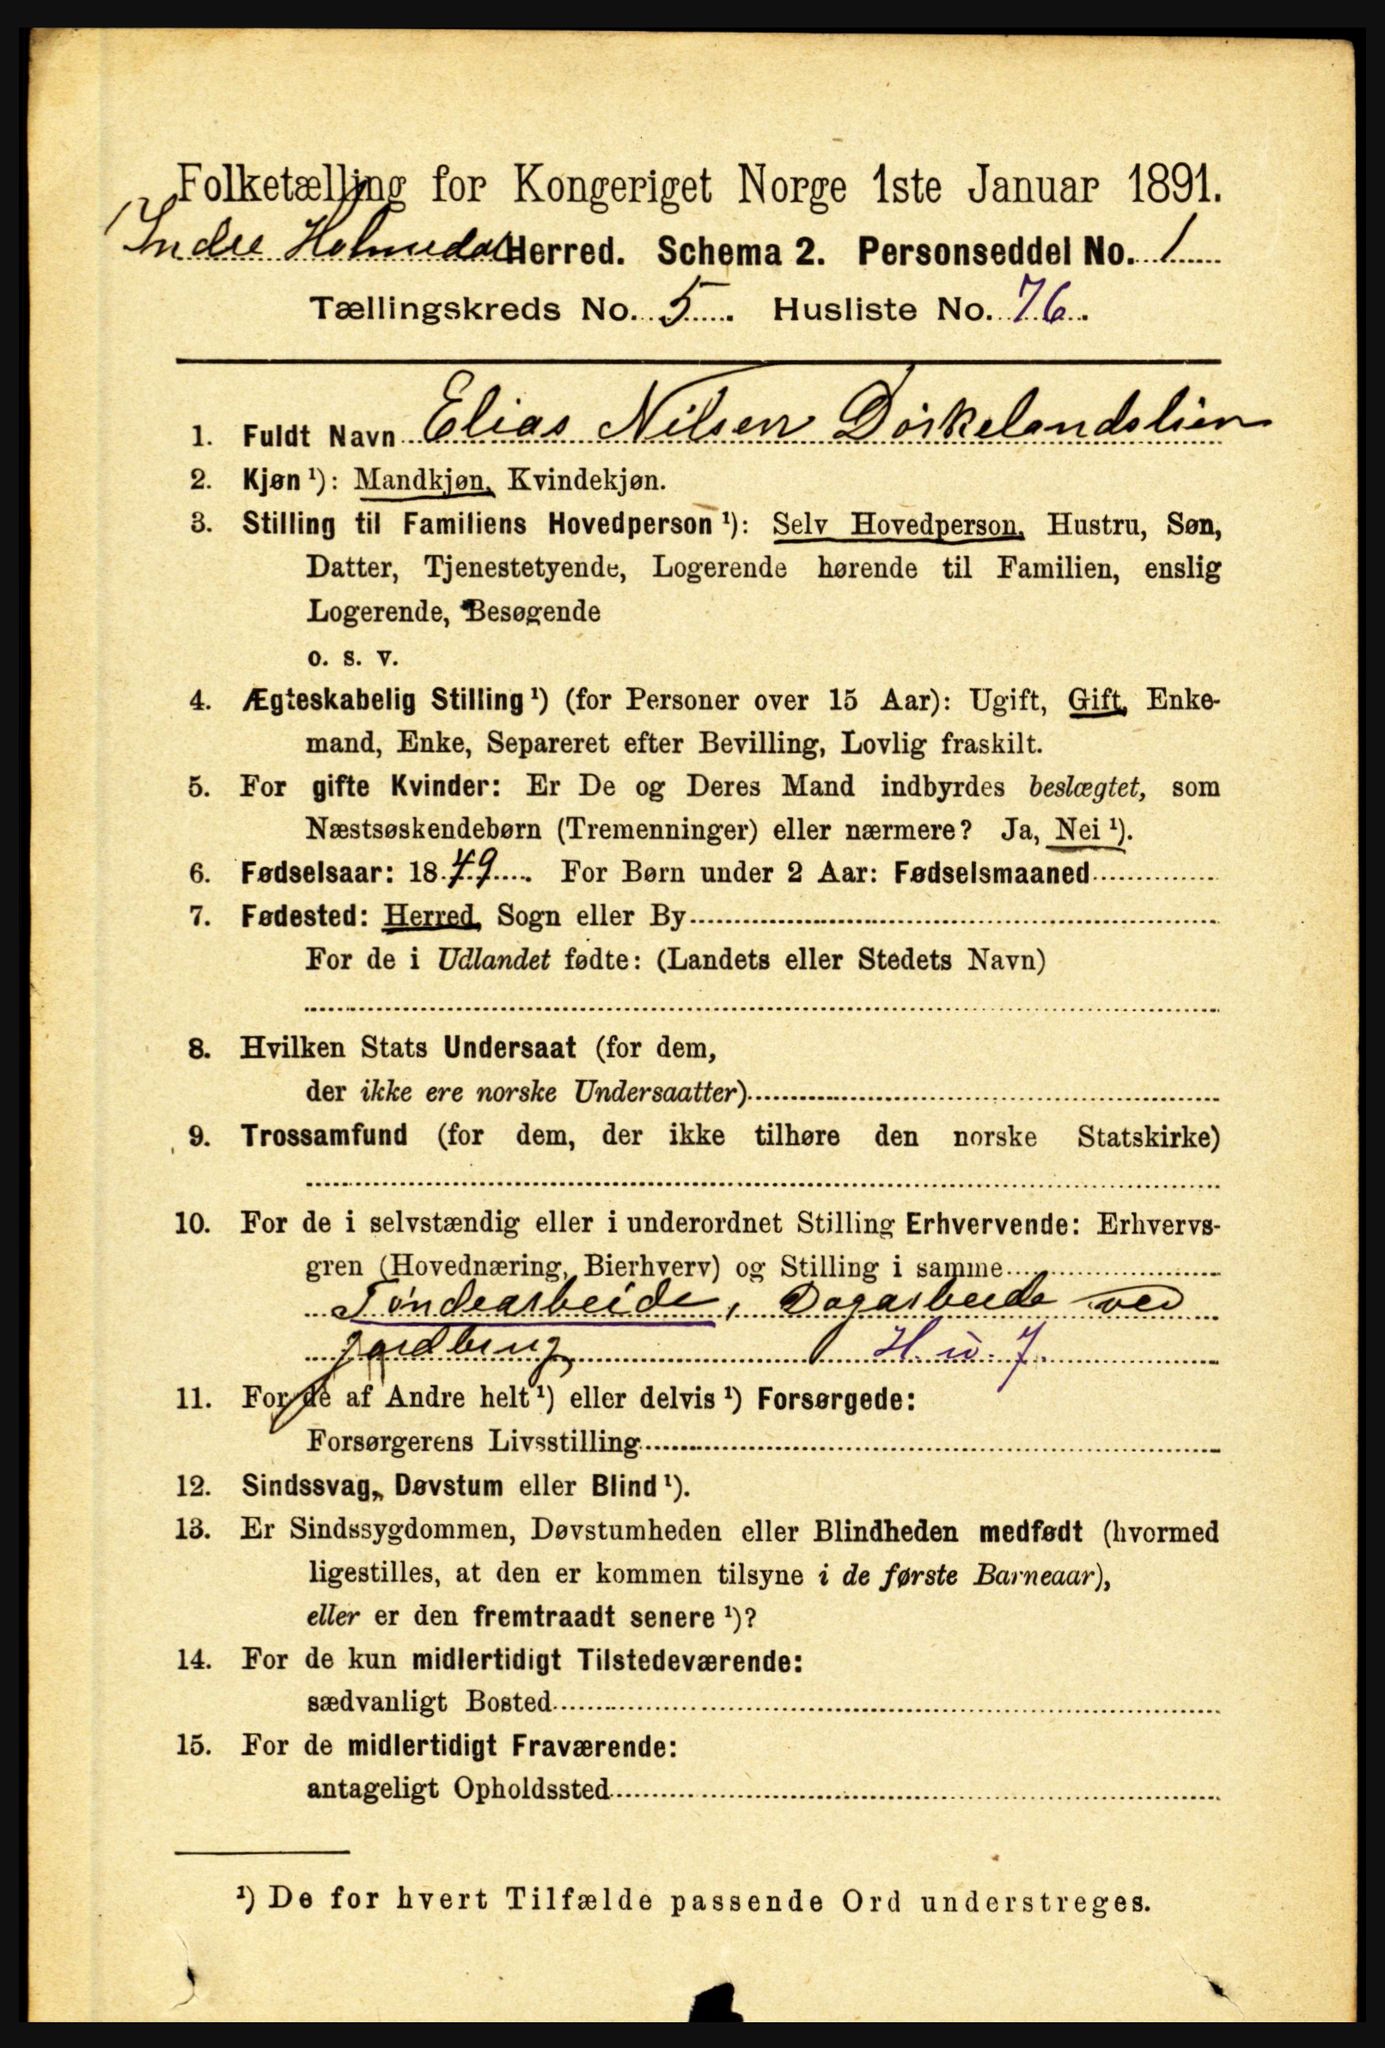 Folketælling for Kongeriget Norge 1ste Januar 1891.
Indre Holmedal Herred. Schema 2. Personseddel No. 1
Tællingskreds No. 5. Husliste No. 76.
1. Fuldt Navn Elias Nilsen Dørkelandslien
2. Kjøn ¹): Mandkjøn, Kvindekjøn.
3. Stilling til Familiens Hovedperson ¹): Selv Hovedperson, Hustru, Søn,
Datter, Tjenestetyende, Logerende hørende til Familien, enslig
Logerende, Besøgende
o. s. v.
4. Ægteskabelig Stilling ¹) (for Personer over 15 Aar): Ugift, Gift, Enke-
mand, Enke, Separeret efter Bevilling, Lovlig fraskilt.
5. For gifte Kvinder: Er De og Deres Mand indbyrdes beslægtet, som
Næstsøskendebørn (Tremenninger) eller nærmere? Ja, Nei ¹).
6. Fødselsaar: 1849. For Børn under 2 Aar: Fødselsmaaned
7. Fødested: Herred, Sogn eller By
For de i Udlandet fødte: (Landets eller Stedets Navn)
8. Hvilken Stats Undersaat (for dem,
der ikke ere norske Undersaatter)
9. Trossamfund (for dem, der ikke tilhøre den norske Statskirke)
10. For de i selvstændig eller i underordnet Stilling Erhvervende: Erhvervs-
gren (Hovednæring, Bierhverv) og Stilling i samme
Tøndearbeide, Dagarbeide ved
jordbrug H. v. 7.
11. For de af Andre helt ¹) eller delvis ¹) Forsørgede:
Forsørgerens Livsstilling
12. Sindssvag, Døvstum eller Blind ¹).
13. Er Sindssygdommen, Døvstumheden eller Blindheden medfødt (hvormed
ligestilles, at den er kommen tilsyne i de første Barneaar),
eller er den fremtraadt senere ¹)?
14. For de kun midlertidigt Tilstedeværende:
sædvanligt Bosted
15. For de midlertidigt Fraværende:
antageligt Opholdssted
¹) De for hvert Tilfælde passende Ord understreges.